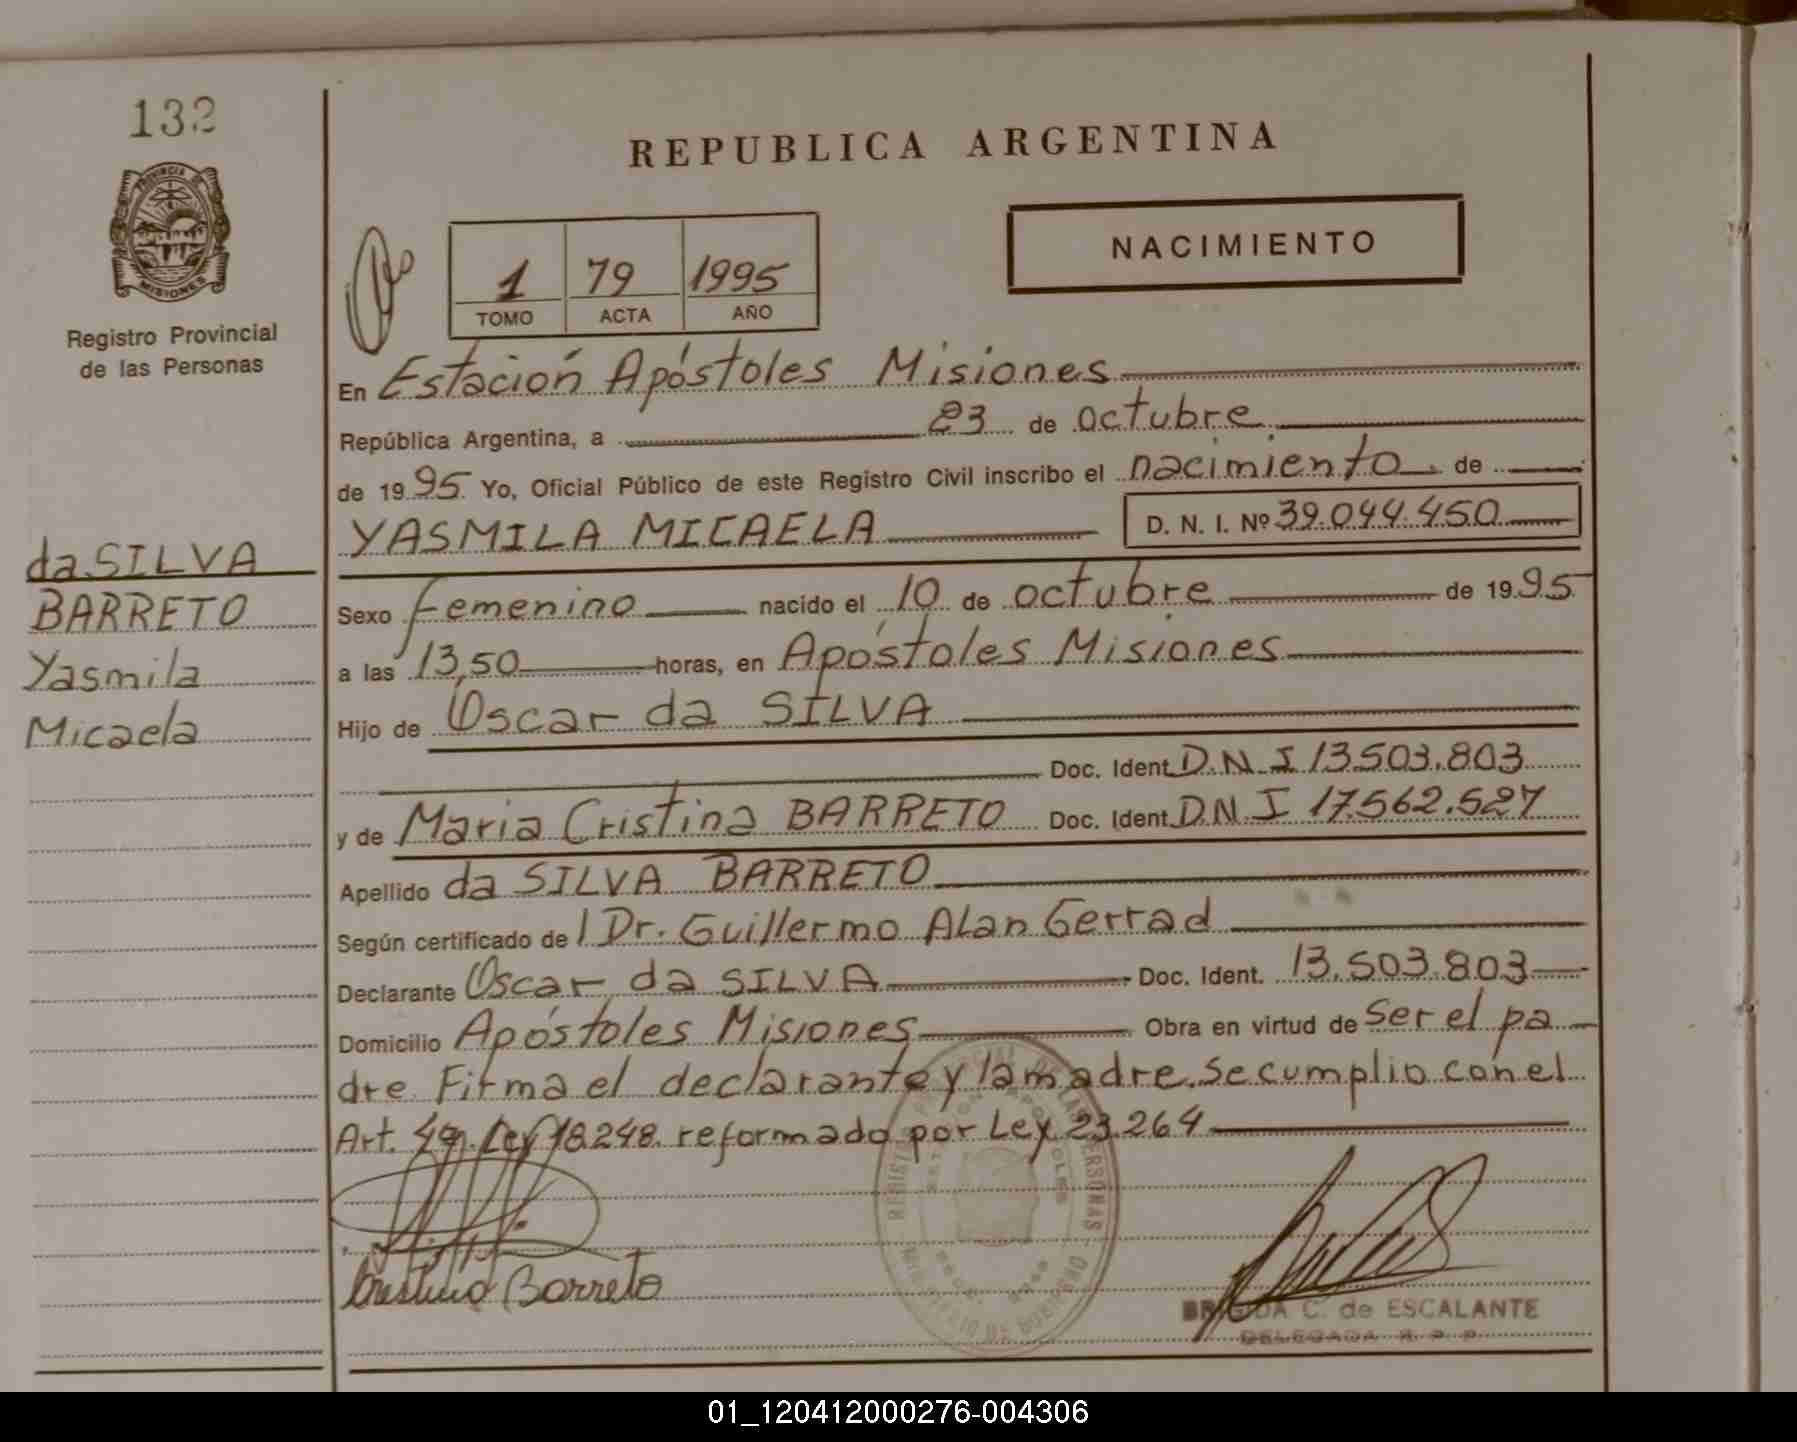 132
PROVINCIA DE
MISIONES
Registro Provincial
de las Personas
da SILVA
BARRETO
Yasmila
Micaela
REPUBLICA ARGENTINA
NACIMIENTO
1 79 1995
TOMO ACTA AÑO
En Estación Apóstoles Misiones
República Argentina, a 23 de octubre
de 1995 Yo, Oficial Público de este Registro Civil inscribo el nacimiento de
YASMILA MICAELA D. N. I. Nº 39.044.450
Sexo femenino nacido el 10 de octubre de 1995
a las 13,50 horas, en Apóstoles Misiones
Hijo de Oscar da SILVA
Doc. Ident. D.N.I 13.503.803
y de Maria Cristina BARRETO Doc. Ident. D.N.I 17.562.527
Apellido da SILVA BARRETO
Según certificado de l Dr. Guillermo Alan Gerrad
Declarante Oscar da SILVA Doc. Ident. 13.503.803
Domicilio Apóstoles Misiones Obra en virtud de ser el pa
dre. Firma el declarante y la madre. Se cumplio con el
Art. Ley 18.248. reformado por Ley 23.264
Cristina Barreto
BRIGIDA C. de ESCALANTE
DELEGADA R. P. P.
01_120412000276-004306